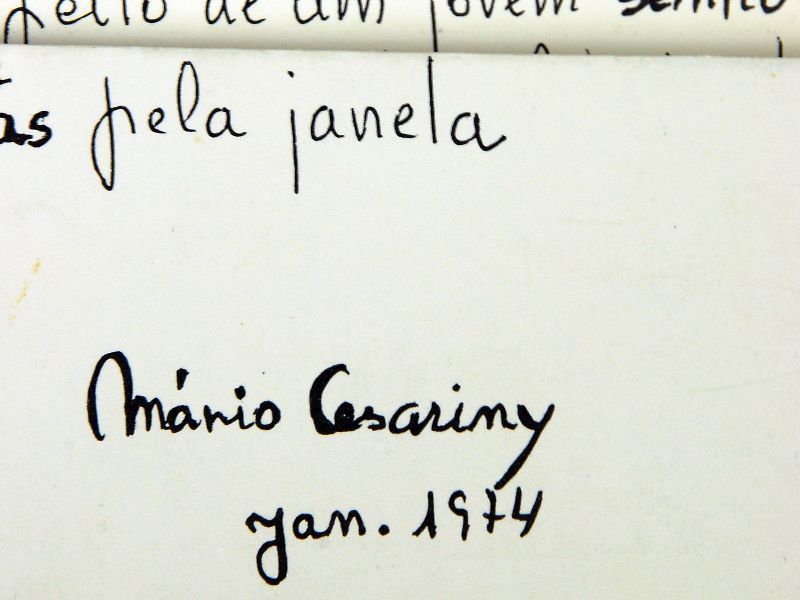 de um jovem
as pela janela
Mário Cesariny
Jan. 1974